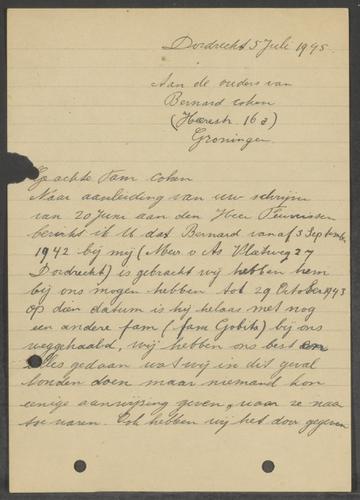 Dordrecht 5 Juli 1945.
Aan de ouders van
Bernard Cohen
(Heerestr. 16 a)
Groningen.
Geachte Fam Cohen
Naar aanleiding van uw schrijven
van 20 Juni aan den Heer
bericht ik U dat Bernard vanaf 3 September
1942 bij mij (Mevr. v As Vlietweg 27
Dordrecht) is gebracht wij hebben hem
bij ons mogen hebben tot 29 October 1943
op dien datum is hij helaas met nog
een andere fam (fam Gobits) bij ons
weggehaald, wij hebben ons best en
alles gedaan wat wij in dit geval
konden doen maar niemand kon
eenige aanwijzing geven, waar ze naar
toe waren. Ook hebben wij het door gegeven